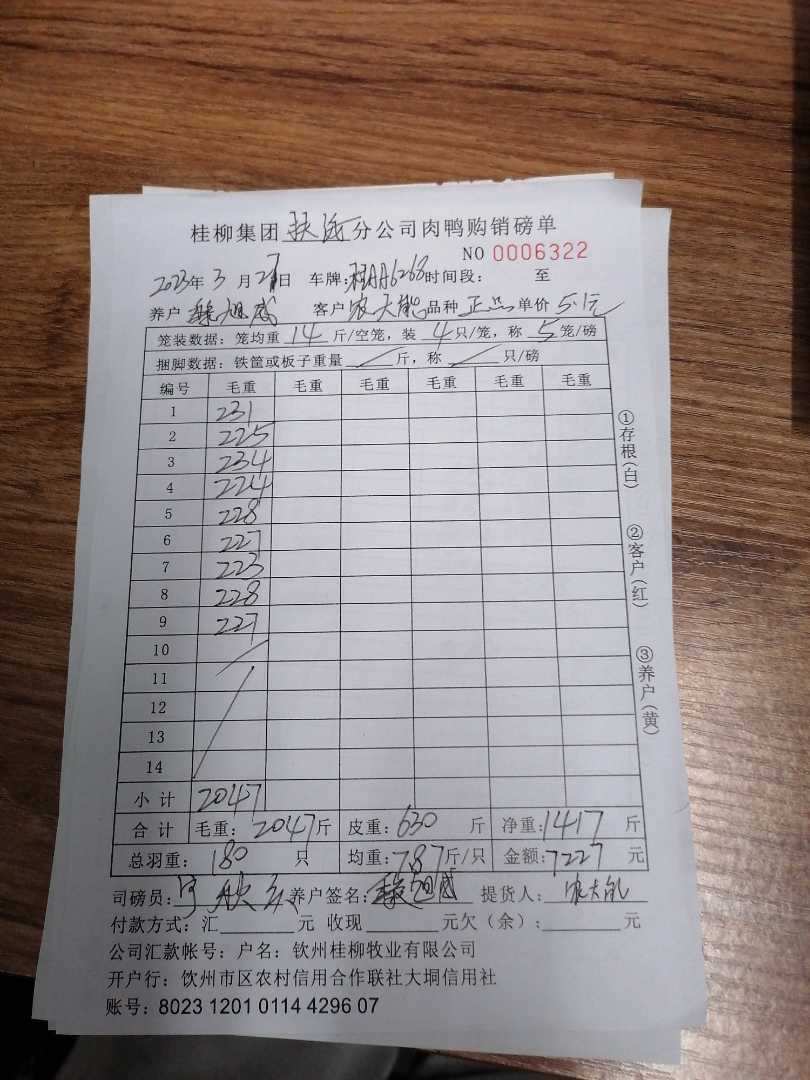 桂柳集团 扶绥 分公司肉鸭购销磅单
NO 0006322
2023年 3 月 27日 车牌: 6268 时间段: 至
养户 旭威 客户 农大能 品种 正品 单价 5.1元
笼装数据: 笼均重 14 斤/空笼, 装 4 只/笼, 称 5 笼/磅
捆脚数据: 铁筐或板子重量 / 斤, 称 / 只/磅
编号 毛重 毛重 毛重 毛重 毛重 毛重
1 231
2 225
3 234
4 224
5 228
6 227
7 223
8 228
9 227
10
11
12
13
14
小计 2047
合计 毛重: 2047斤 皮重: 630 斤 净重: 1417 斤
总羽重: 180 只 均重: 7.87斤/只 金额: 7227 元
司磅员: 养户签名: 旭威 提货人: 农大能
付款方式: 汇 元 收现 元欠(余): 元
公司汇款帐号: 户名: 钦州桂柳牧业有限公司
开户行: 饮州市区农村信用合作联社大垌信用社
账号: 8023 1201 0114 4296 07
①存根(白)
②客户(红)
③养户(黄)